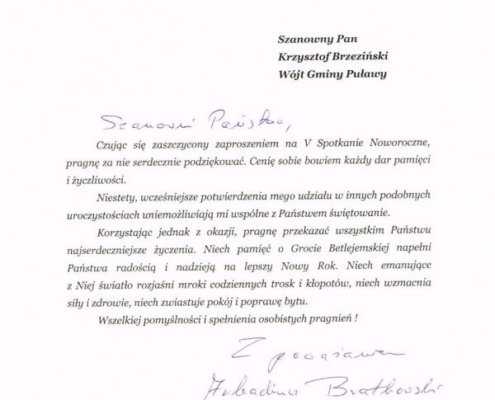 Szanowny Pan
Krzysztof Brzeziński
Wójt Gminy Puławy
Szanowni Państwo,
Czując się zaszczycony zaproszeniem na V Spotkanie Noworoczne,
pragnę za nie serdecznie podziękować. Cenię sobie bowiem każdy dar pamięci
i życzliwości.
Niestety, wcześniejsze potwierdzenia mego udziału w innych podobnych
uroczystościach uniemożliwiają mi wspólne z Państwem świętowanie.
Korzystając jednak z okazji, pragnę przekazać wszystkim Państwu
najserdeczniejsze życzenia. Niech pamięć o Grocie Betlejemskiej napełni
Państwa radością i nadzieją na lepszy Nowy Rok. Niech emanujące
z Niej światło rozjaśni mroki codziennych trosk i kłopotów, niech wzmacnia
siły i zdrowie, niech zwiastuje pokój i poprawę bytu.
Wszelkiej pomyślności i spełnienia osobistych pragnień !
Z poważaniem
Arkadiusz Bratkowski